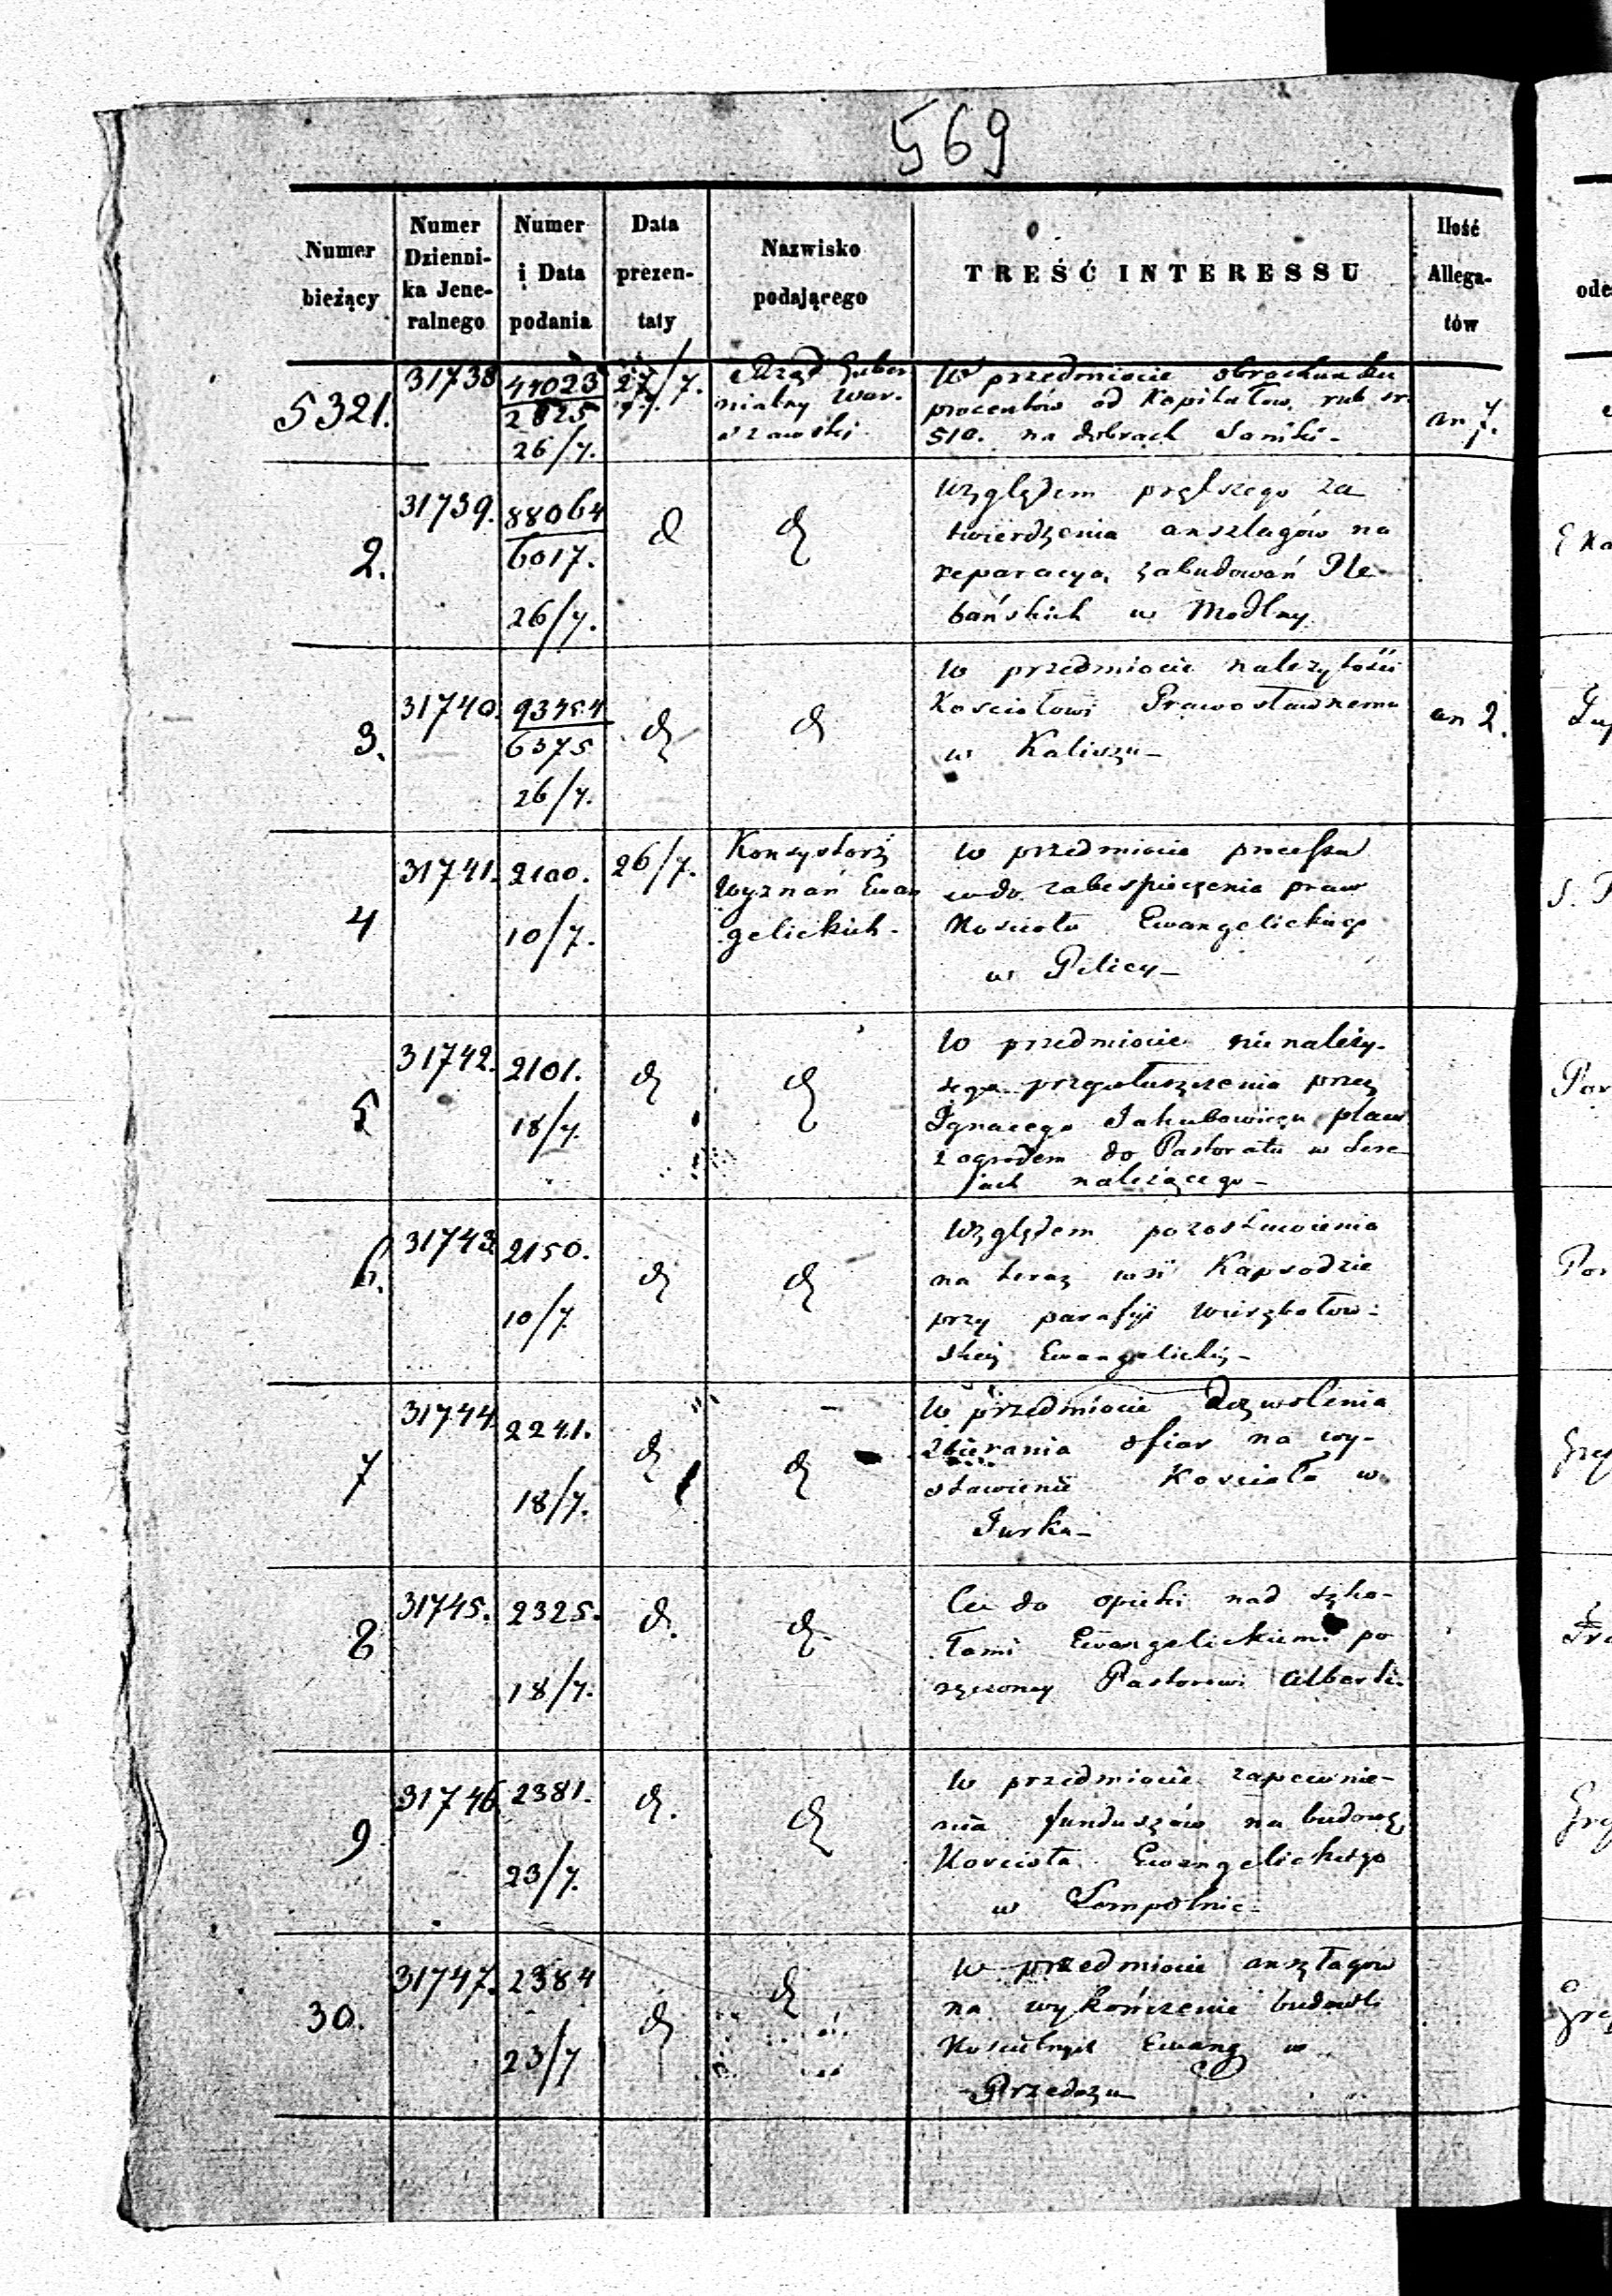 569
Numer bieżący
Numer Dzienni-ka Jene-ralnego
Numer i Data podania
Data prezen-taty
Nazwisko podającego
TREŚĆ INTERESSU
Ilość Allega-tów
5321.
31738
44023
2825
26/7.
27/7.
Rząd Guber
nialny War-
szawski.
W przedmiocie obrachunku
procentów od Kapitałów rub sr.
510. na dobrach Saniki-
an 7.
2.
31739.
88064
6017.
26/7.
d
d
Względem prętszego za
twierdzenia anszlagów na
reparacyą zabudowań Ple-
bańskich w Modlny
3.
31740.
93454
6375
26/7.
d
d
W przedmiocie należytości
Kościołowi Prawosławnemu
w Kaliszu-
an 2.
4
31741.
2100.
10/7.
26/7.
Konsystorz
Wyznań Ewan
gelickich-
W przedmiocie processu
wdo zabespieczenia praw
Kościoła Ewangelickiego
w Pilicy-
5
31742.
2101.
18/7.
d
d
W przedmiocie nienależy-
przez
Ignacego Jakubowicza placu
z ogrodem do Pastoratu w Sere-
jach należącego-
6.
31743
2150.
10/7.
d
d
Względem pozostawienia
na teraz wsi Kapsodzie
przy parafji Wierzbołow-
skiej Ewangelickiej-
7
31744.
2241.
18/7.
d
d
W przedmiocie dozwolenia
zbierania ofiar na wy-
stawienie Kościoła w
Turku-
8
31745.
2325.
18/7.
d.
d.
Co do opieki nad szko-
łami Ewangelickiemi po
ręczoney Pastorowi Alberti.
9
31746
2381.
23/7.
d.
d
W przedmiocie zapewnie-
nia funduszów na budowę
Kościoła Ewangelickiego
w Sompolnie-
30.
31747.
2384
23/7
d
d
W przedmiocie anszlagów
na wykończenie budowli
Kościelnych Ewang w
Przedczu